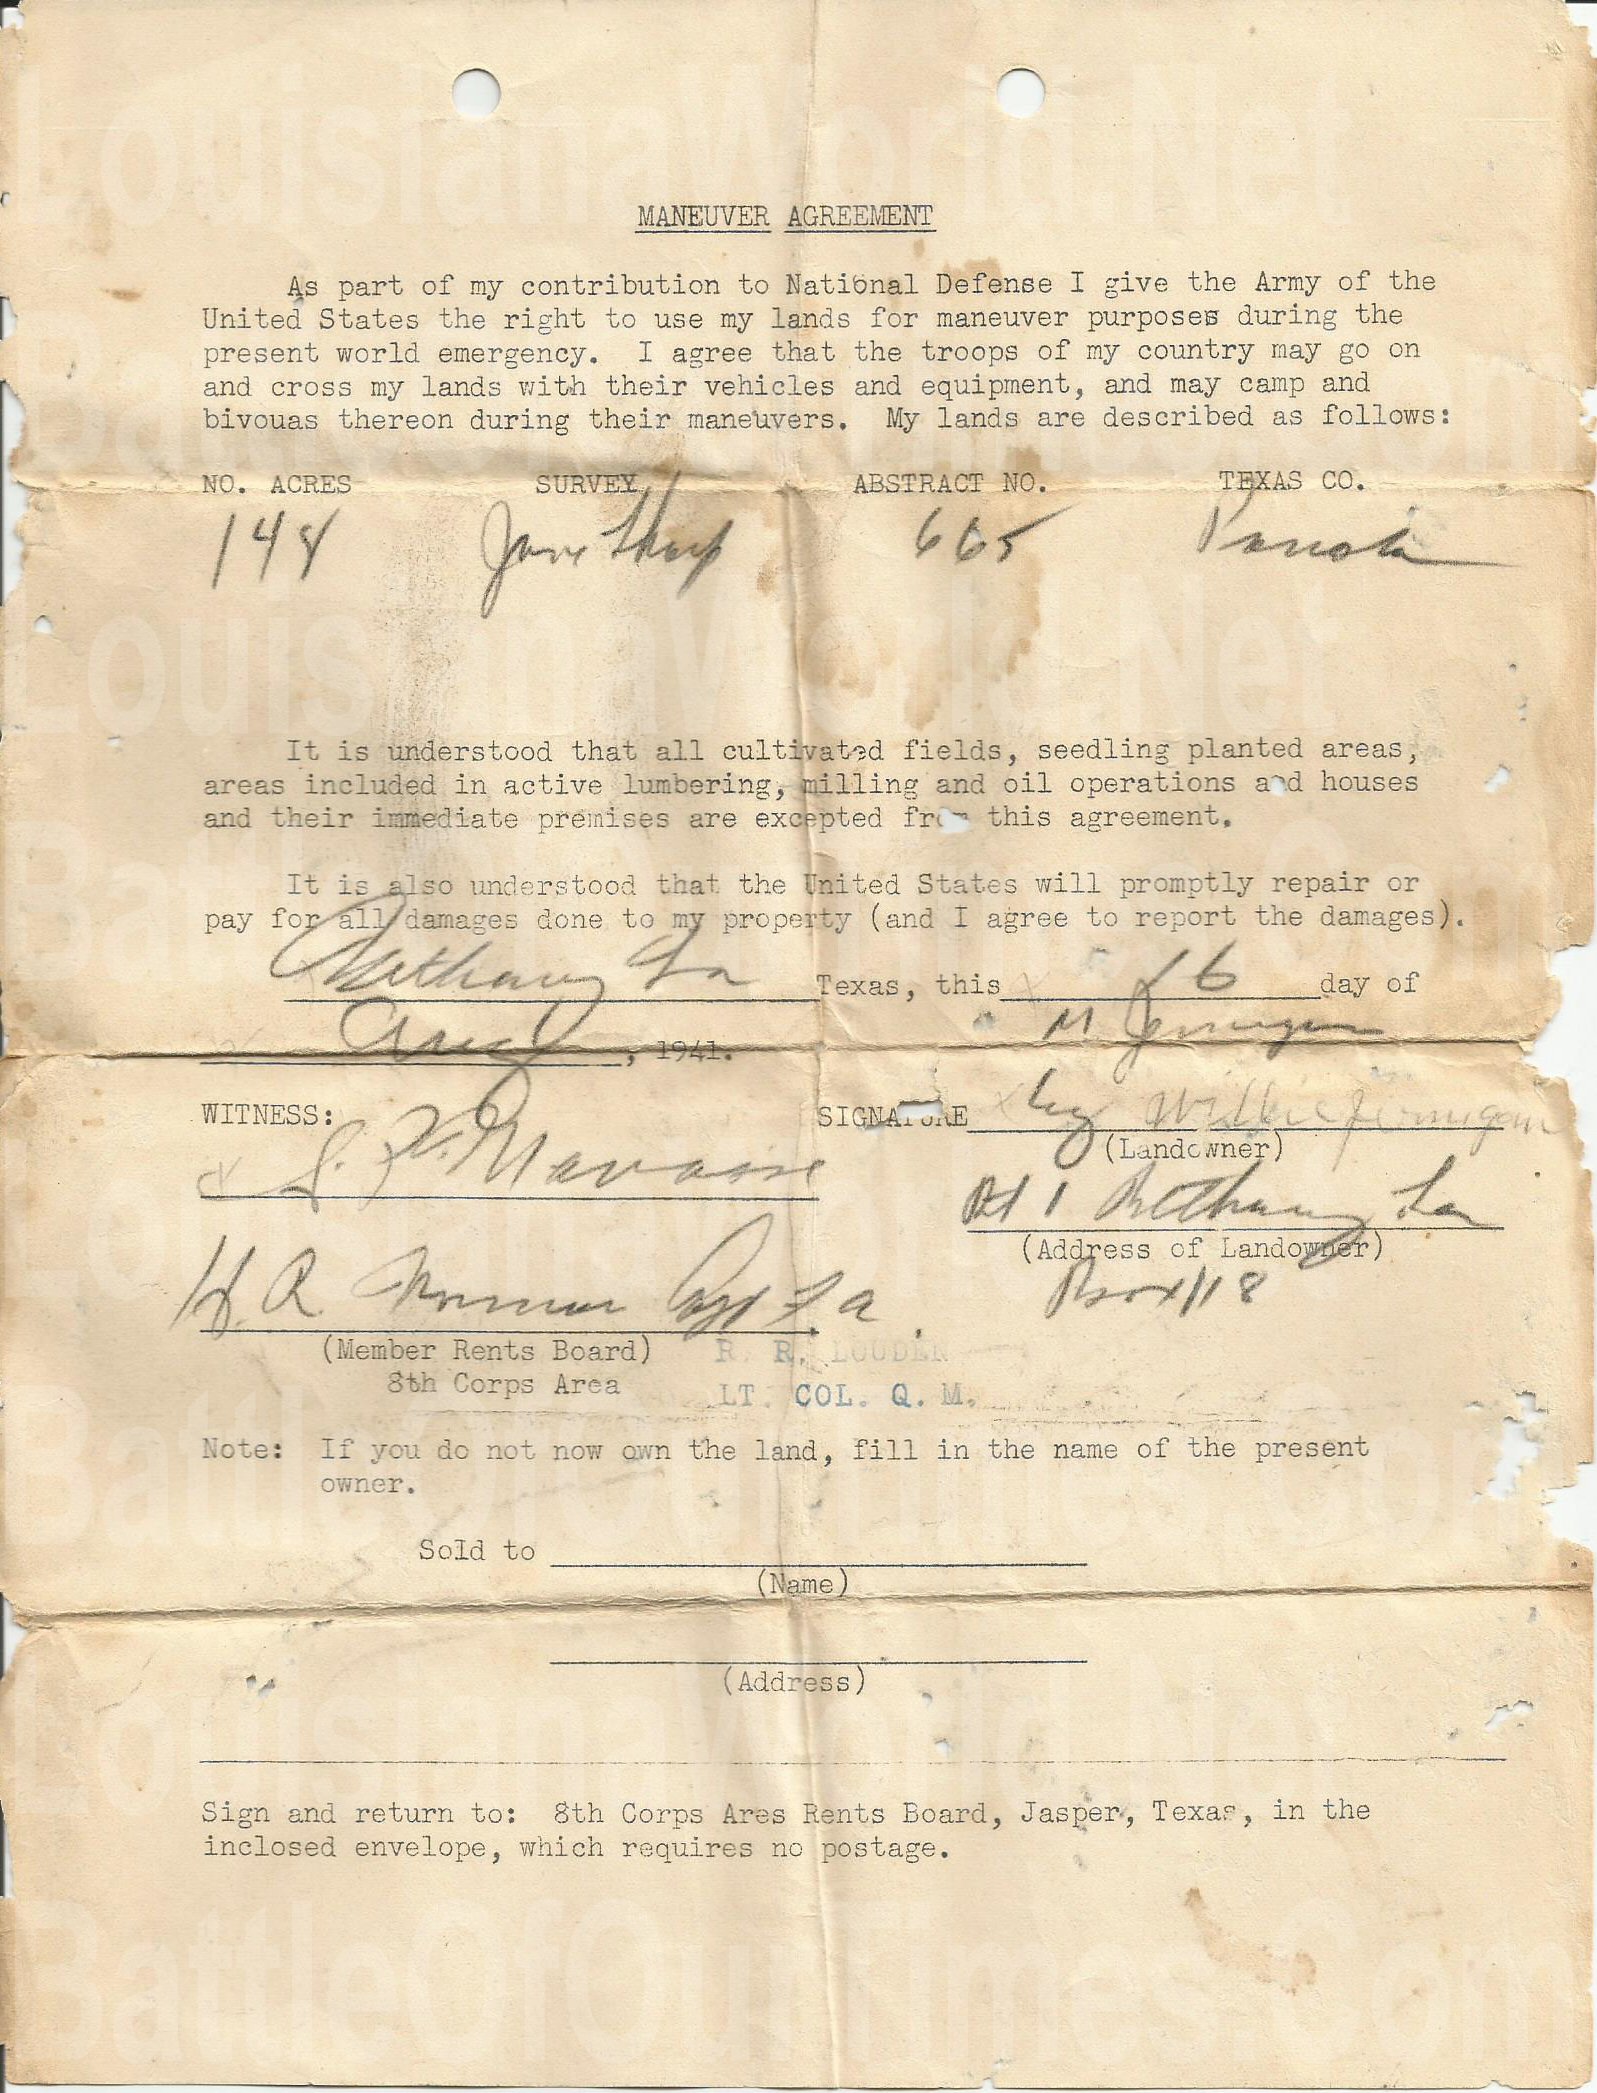 MANEUVER AGREEMENT
As part of my contribution to National Defense I give the Army of the
United States the right to use my lands for maneuver purposes during the
present world emergency. I agree that the troops of my country may go on
and cross my lands with their vehicles and equipment, and may camp and
bivouas thereon during their maneuvers. My lands are described as follows:
NO. ACRES SURVEY ABSTRACT NO. TEXAS CO.
148 Jane Tharp 665 Panola
It is understood that all cultivated fields, seedling planted areas,
areas included in active lumbering, milling and oil operations and houses
and their immediate premises are excepted from this agreement.
It is also understood that the United States will promptly repair or
pay for all damages done to my property (and I agree to report the damages).
Bethany La Texas, this 16 day of
Aug, 1941. M Jernigan
WITNESS: SIGNATURE by Willie Jernigan
(Landowner)
Rt 1 Bethany La
H. R.
(Address of Landowner)
Box 118
(Member Rents Board) R. R. LOUDEN
8th Corps Area LT. COL. Q. M.
Note: If you do not now own the land, fill in the name of the present
owner.
Sold to
(Name)
(Address)
Sign and return to: 8th Corps Ares Rents Board, Jasper, Texas, in the
inclosed envelope, which requires no postage.
LouisianaWorld.Net
BattleOfOurTimes.Com
LouisianaWorld.Net
BattleOfOurTimes.Com
BattleOfOurTimes.Com
LouisianaWorld.Net
BattleOfOurTimes.Com